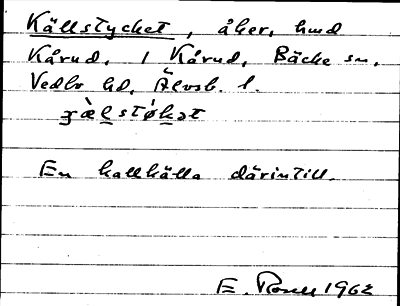 Källstycket, åker, hmd
Kårud, 1 Kårud, Bäcke sn,
Vedbo hd, Älvsb. l.
En kallkälla därintill.
E. Rosell 1962